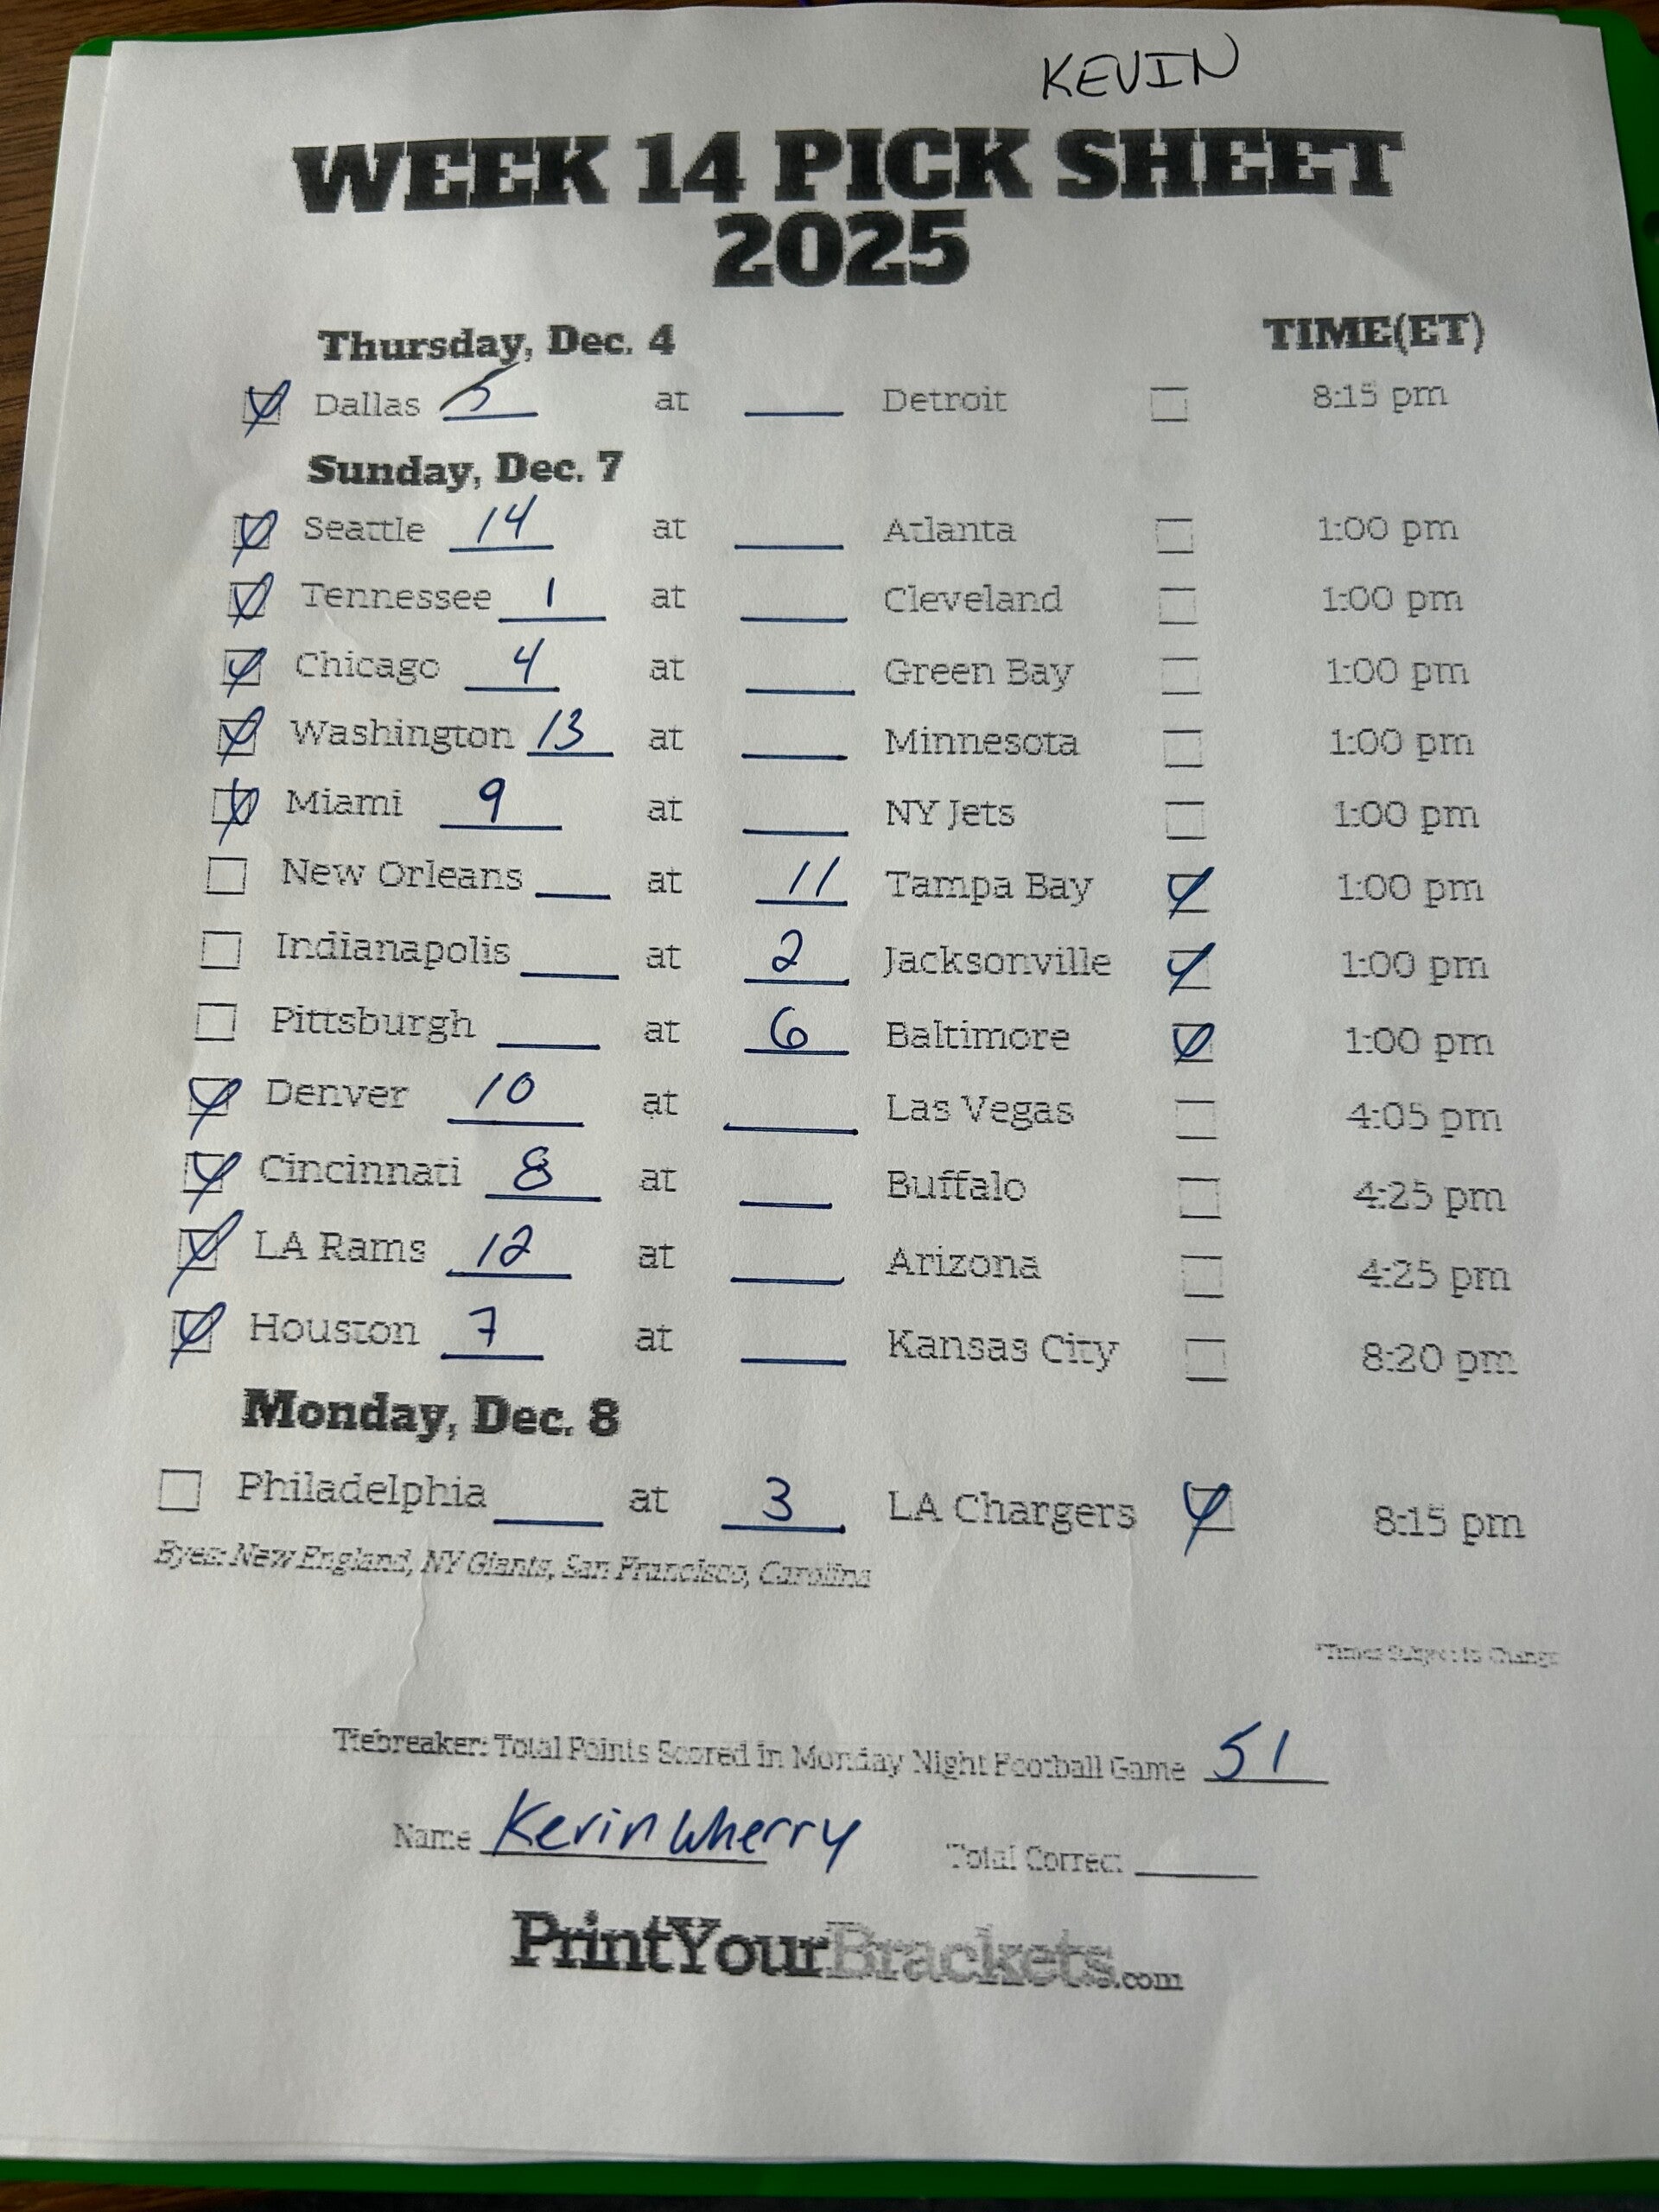 KEVIN
WEEK 14 PICK SHEET
2025
Thursday, Dec. 4 TIME(ET)
Dallas 5 at Detroit 8:15 pm
Sunday, Dec. 7
Seattle 14 at Atlanta 1:00 pm
Tennessee 1 at Cleveland 1:00 pm
Chicago 4 at Green Bay 1:00 pm
Washington 13 at Minnesota 1:00 pm
Miami 9 at NY Jets 1:00 pm
New Orleans at 11 Tampa Bay 1:00 pm
Indianapolis at 2 Jacksonville 1:00 pm
Pittsburgh at 6 Baltimore 1:00 pm
Denver 10 at Las Vegas 4:05 pm
Cincinnati 8 at Buffalo 4:25 pm
LA Rams 12 at Arizona 4:25 pm
Houston 7 at Kansas City 8:20 pm
Monday, Dec. 8
Philadelphia at 3 LA Chargers 8:15 pm
Byes: New England, NY Giants, San Francisco, Carolina
*Times Subject to Change
Tiebreaker: Total Points Scored in Monday Night Football Game 51
Name Kevin Wherry Total Correct
PrintYourBrackets.com